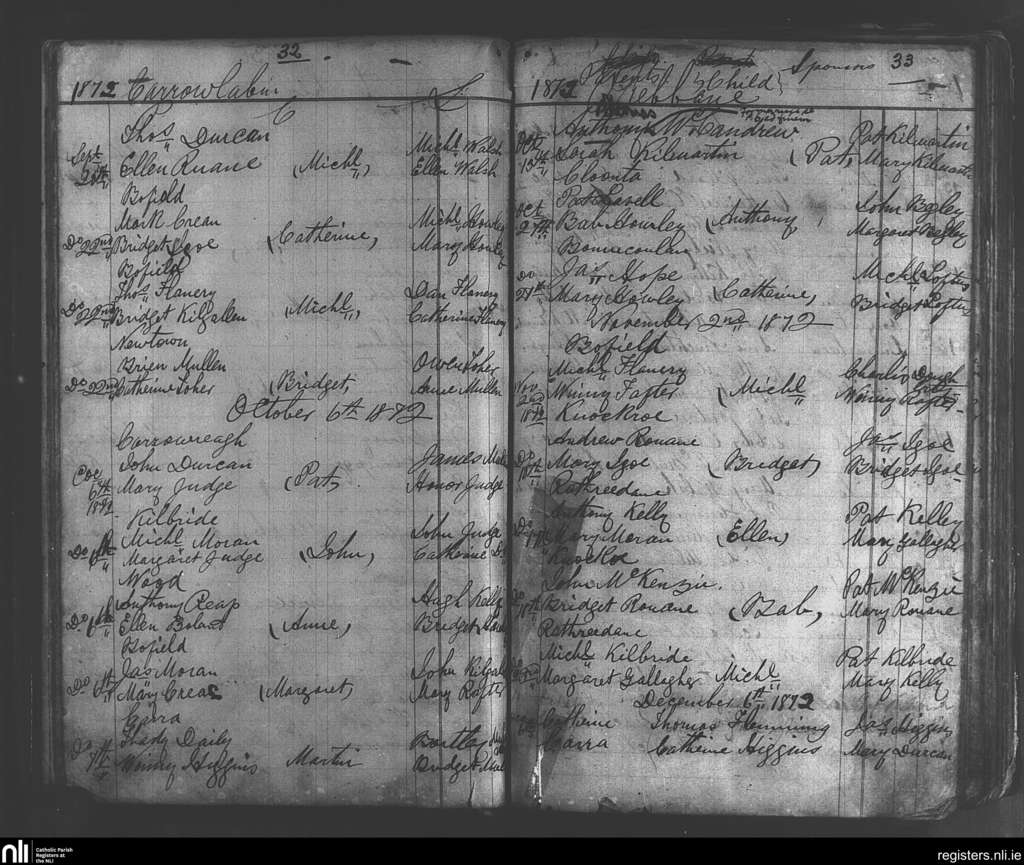 32
1872 Carrowcabin
Thos Durcan
Sept
Ellen Ruane (Michl,) Michl Walsh
Ellen Walsh
Bofield
Mark Crean
Do 22nd Bridget Igoe (Catherine, Michl Howley
Mary Howley
Bofield
Thos Flanery
Do 22nd Bridget Kilgallen (Michl, Dan Flanery
Catherine Flanery
Newtown
Brien Mullen
Do 22nd Catherine Toher (Bridget, Owen Toher
Anne Mullen
October 6th 1872
Carrowreagh
John Durcan
6th 1872 Mary Judge (Pat, James
Honor Judge
Kilbride
Michl Moran
Do 6th Margaret Judge (John, John Judge
Catherine Do
Wood
Anthony Reap
Do 6th Ellen Boland (Anne, Hugh Kelly
Bridget
Bofield
Jas Moran
Do 6th Mary Crean (Margaret, John Kilgallen
Mary Rafter
Garra
Thady Daily
Do Winny Higgins Martin Bartley
Bridget
33
1872 Parents {Child} Sponsors
Anthony McLandrew
Oct 13th Sarah Kilmartin (Pat, Pat Kilmartin
Mary Kilmartin
Cloonta
Pat Lavell
Oct 27th Bab Howley (Anthony John Begley
Margaret Begley
Jas Hope
Do 27th Mary Howley (Catherine, Michl Loftus
Bridget Loftus
November 2nd 1872
Bofield
Michl Flanery
Nov 2nd 1872 Winny Rafter (Michl Charlie
Winny Rafter
Knockroe
Andrew Rouane
Do Mary Igoe (Bridget, Jas Igoe
Bridget Igoe
Rathreedane
Anthony Kelly
Do Mary Moran (Ellen, Pat Kelley
Mary Gallagher
Knockroe
John McKenzie
Bridget Rouane (Bab, Pat McKenzie
Mary Rouane
Rathreedane
Michl Kilbride
Margaret Gallagher Michl Pat Kilbride
Mary Kelly
December 6th 1872
Catherine Thomas Flemming Jas Higgins
Garra Catherine Higgins Mary Durcan
nli Catholic Parish
Registers at
the NLI
registers.nli.ie